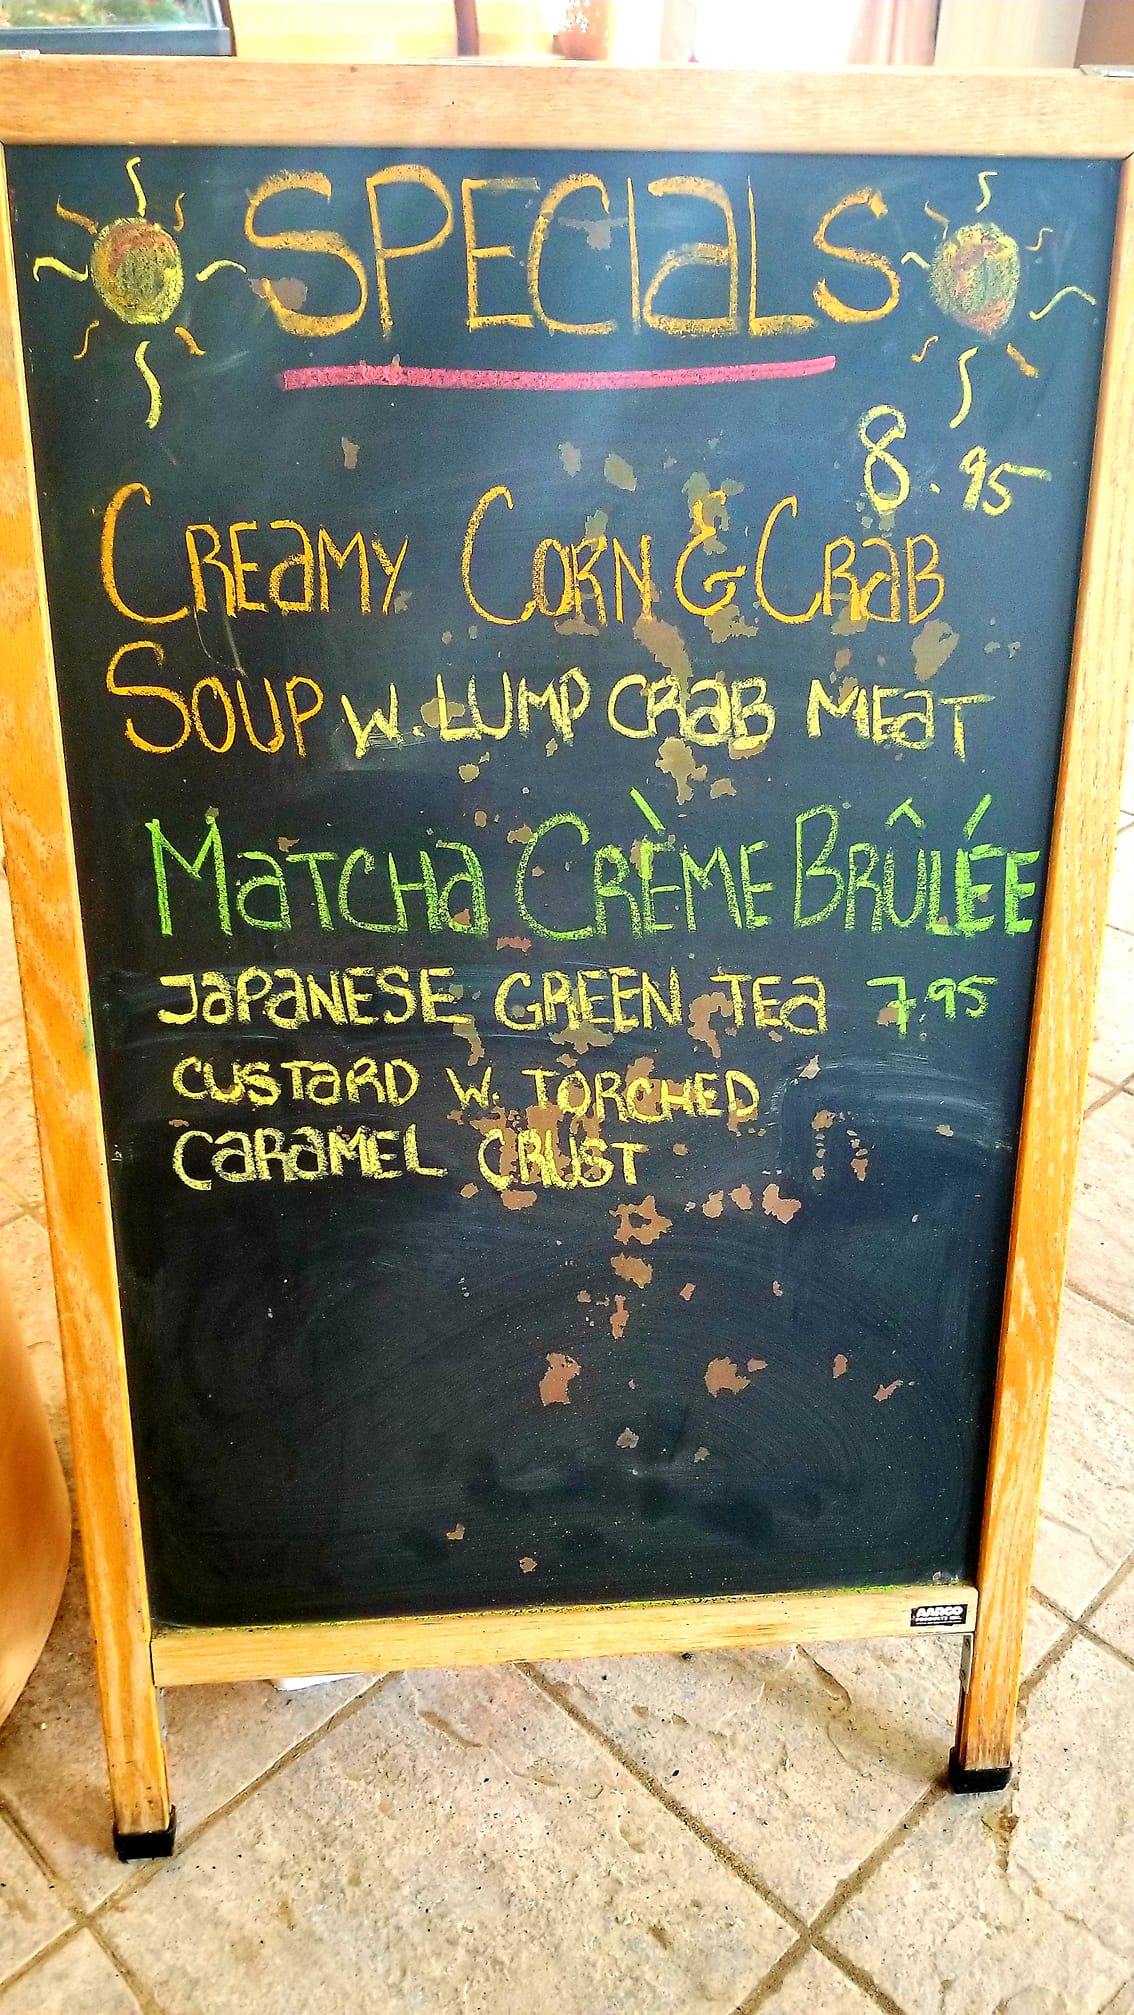 SPECIALS
8.95
CREAMY CORN & CRAB
SOUP W. LUMP CRAB MEAT
MATCHA CRÈME BRÛLÉE
JAPANESE GREEN TEA 7.95
CUSTARD W. TORCHED
CARAMEL CRUST
AARCO
PRODUCTS INC.